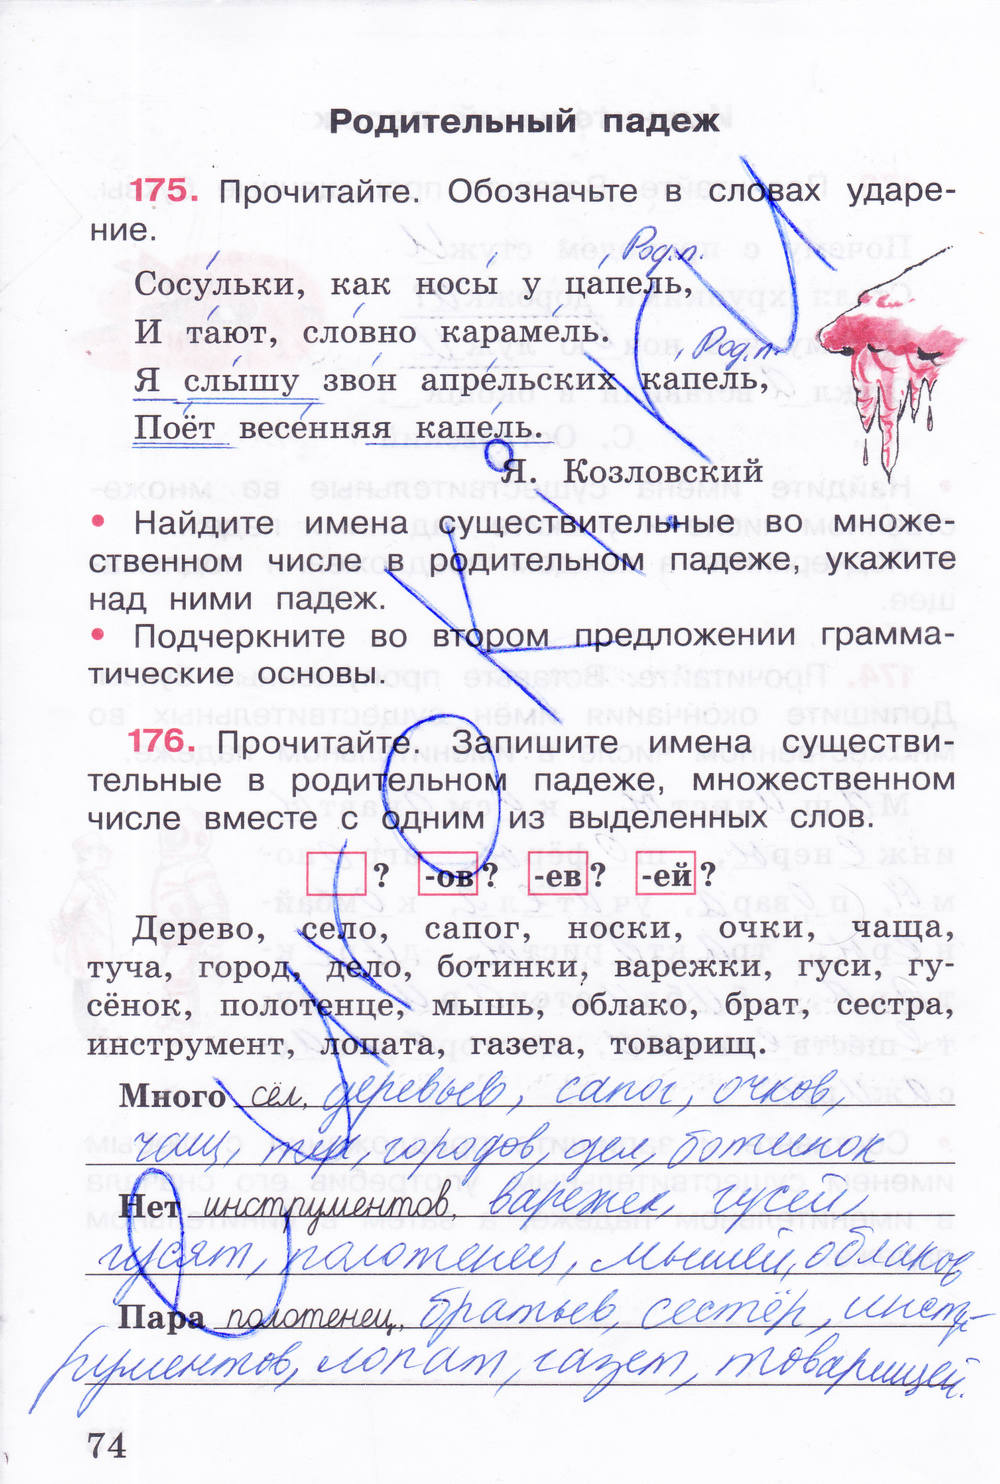 Родительный падеж
175. Прочитайте. Обозначьте в словах ударе-
ние.
Сосульки, как носы у цапель, Род.п.
И тают, словно карамель,
Я слышу звон апрельских капель, Род.п.
Поёт весенняя капель.
Я. Козловский
• Найдите имена существительные во множе-
ственном числе в родительном падеже, укажите
над ними падеж.
• Подчеркните во втором предложении грамма-
тические основы.
176. Прочитайте. Запишите имена существи-
тельные в родительном падеже, множественном
числе вместе с одним из выделенных слов.
? -ов? -ев? -ей?
Дерево, село, сапог, носки, очки, чаща,
туча, город, дело, ботинки, варежки, гуси, гу-
сёнок, полотенце, мышь, облако, брат, сестра,
инструмент, лопата, газета, товарищ.
Много сёл, деревьев, сапог, очков,
чащ, городов, дел, ботинок
Нет инструментов, варежек, гусей,
гусят, полотенец, мышей, облаков
Пара полотенец, братьев, сестёр, инст-
рументов, лопат, газет, товарищей.
74